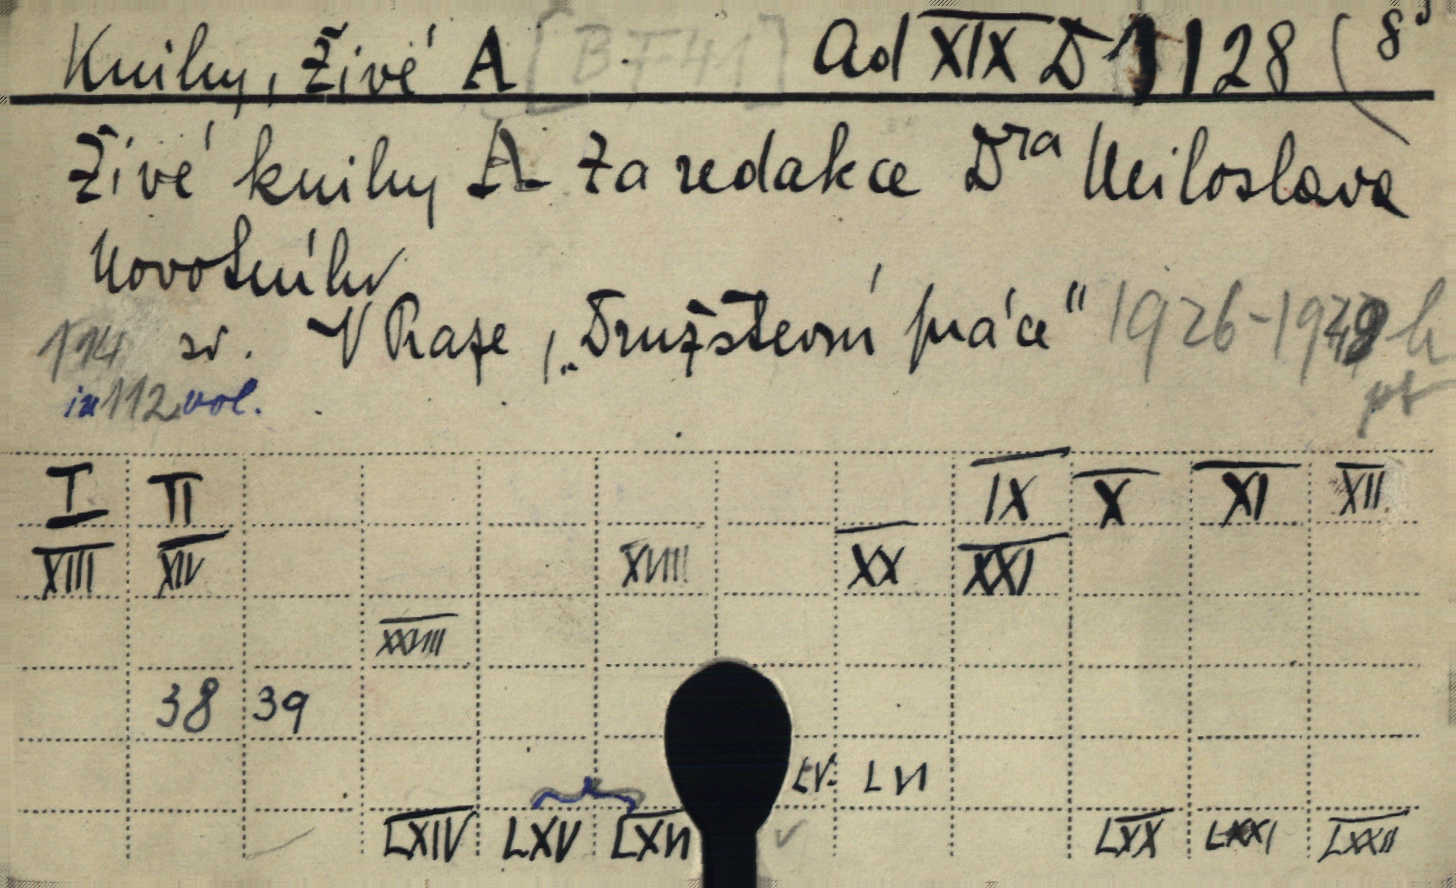 Knihy, Živé A [BF41] Ad XIX D 1128 (8°)
Živé knihy A za redakce Dra Miloslava
Novotného
114 sv. V Praze, „Družstevní práce" 1926-1949
in 112 vol.
I II IX X XI XII
XIII XIV XVIII XX XXI
XXVIII
38 39
LV. LVI
LXIV LXV LXVI LXX LXXI LXXII